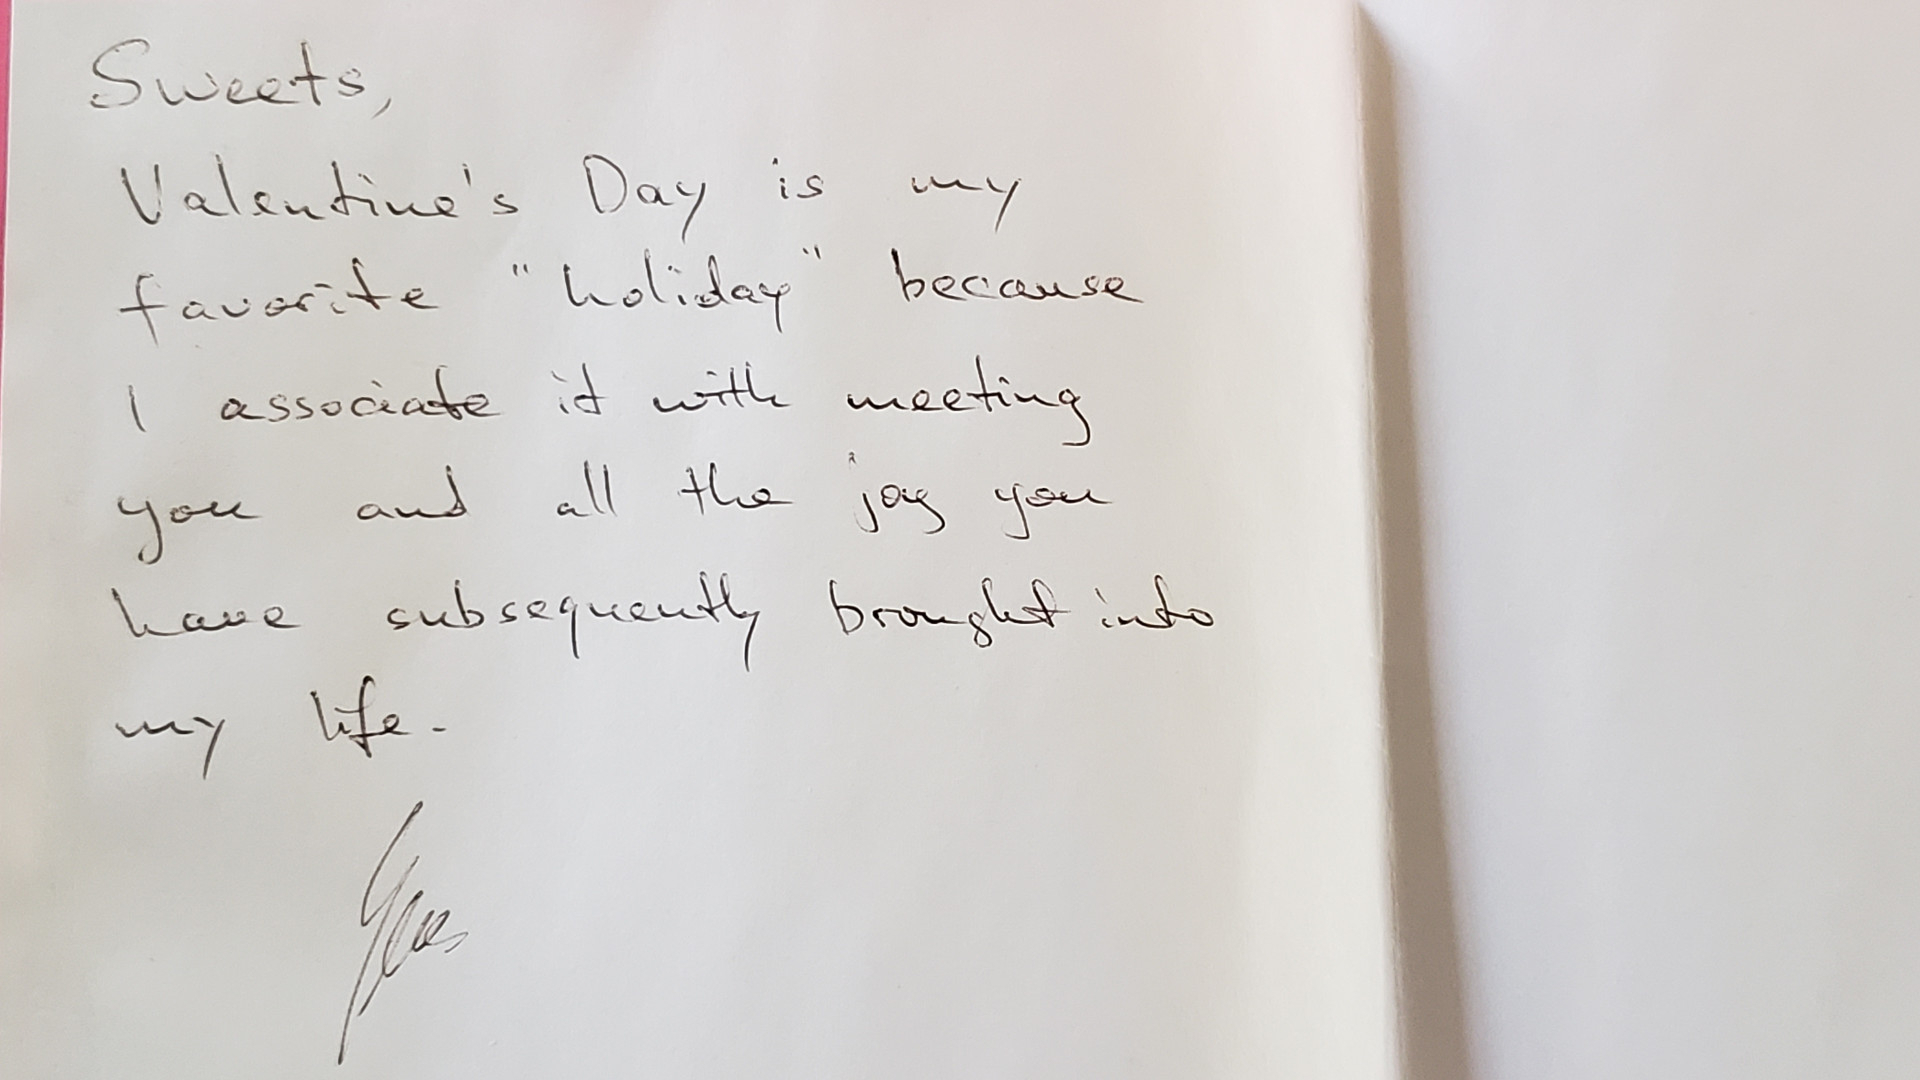 Sweets,
Valentine's Day is my
favorite "holiday" because
I associate it with meeting
you and all the joy you
have subsequently brought into
my life.